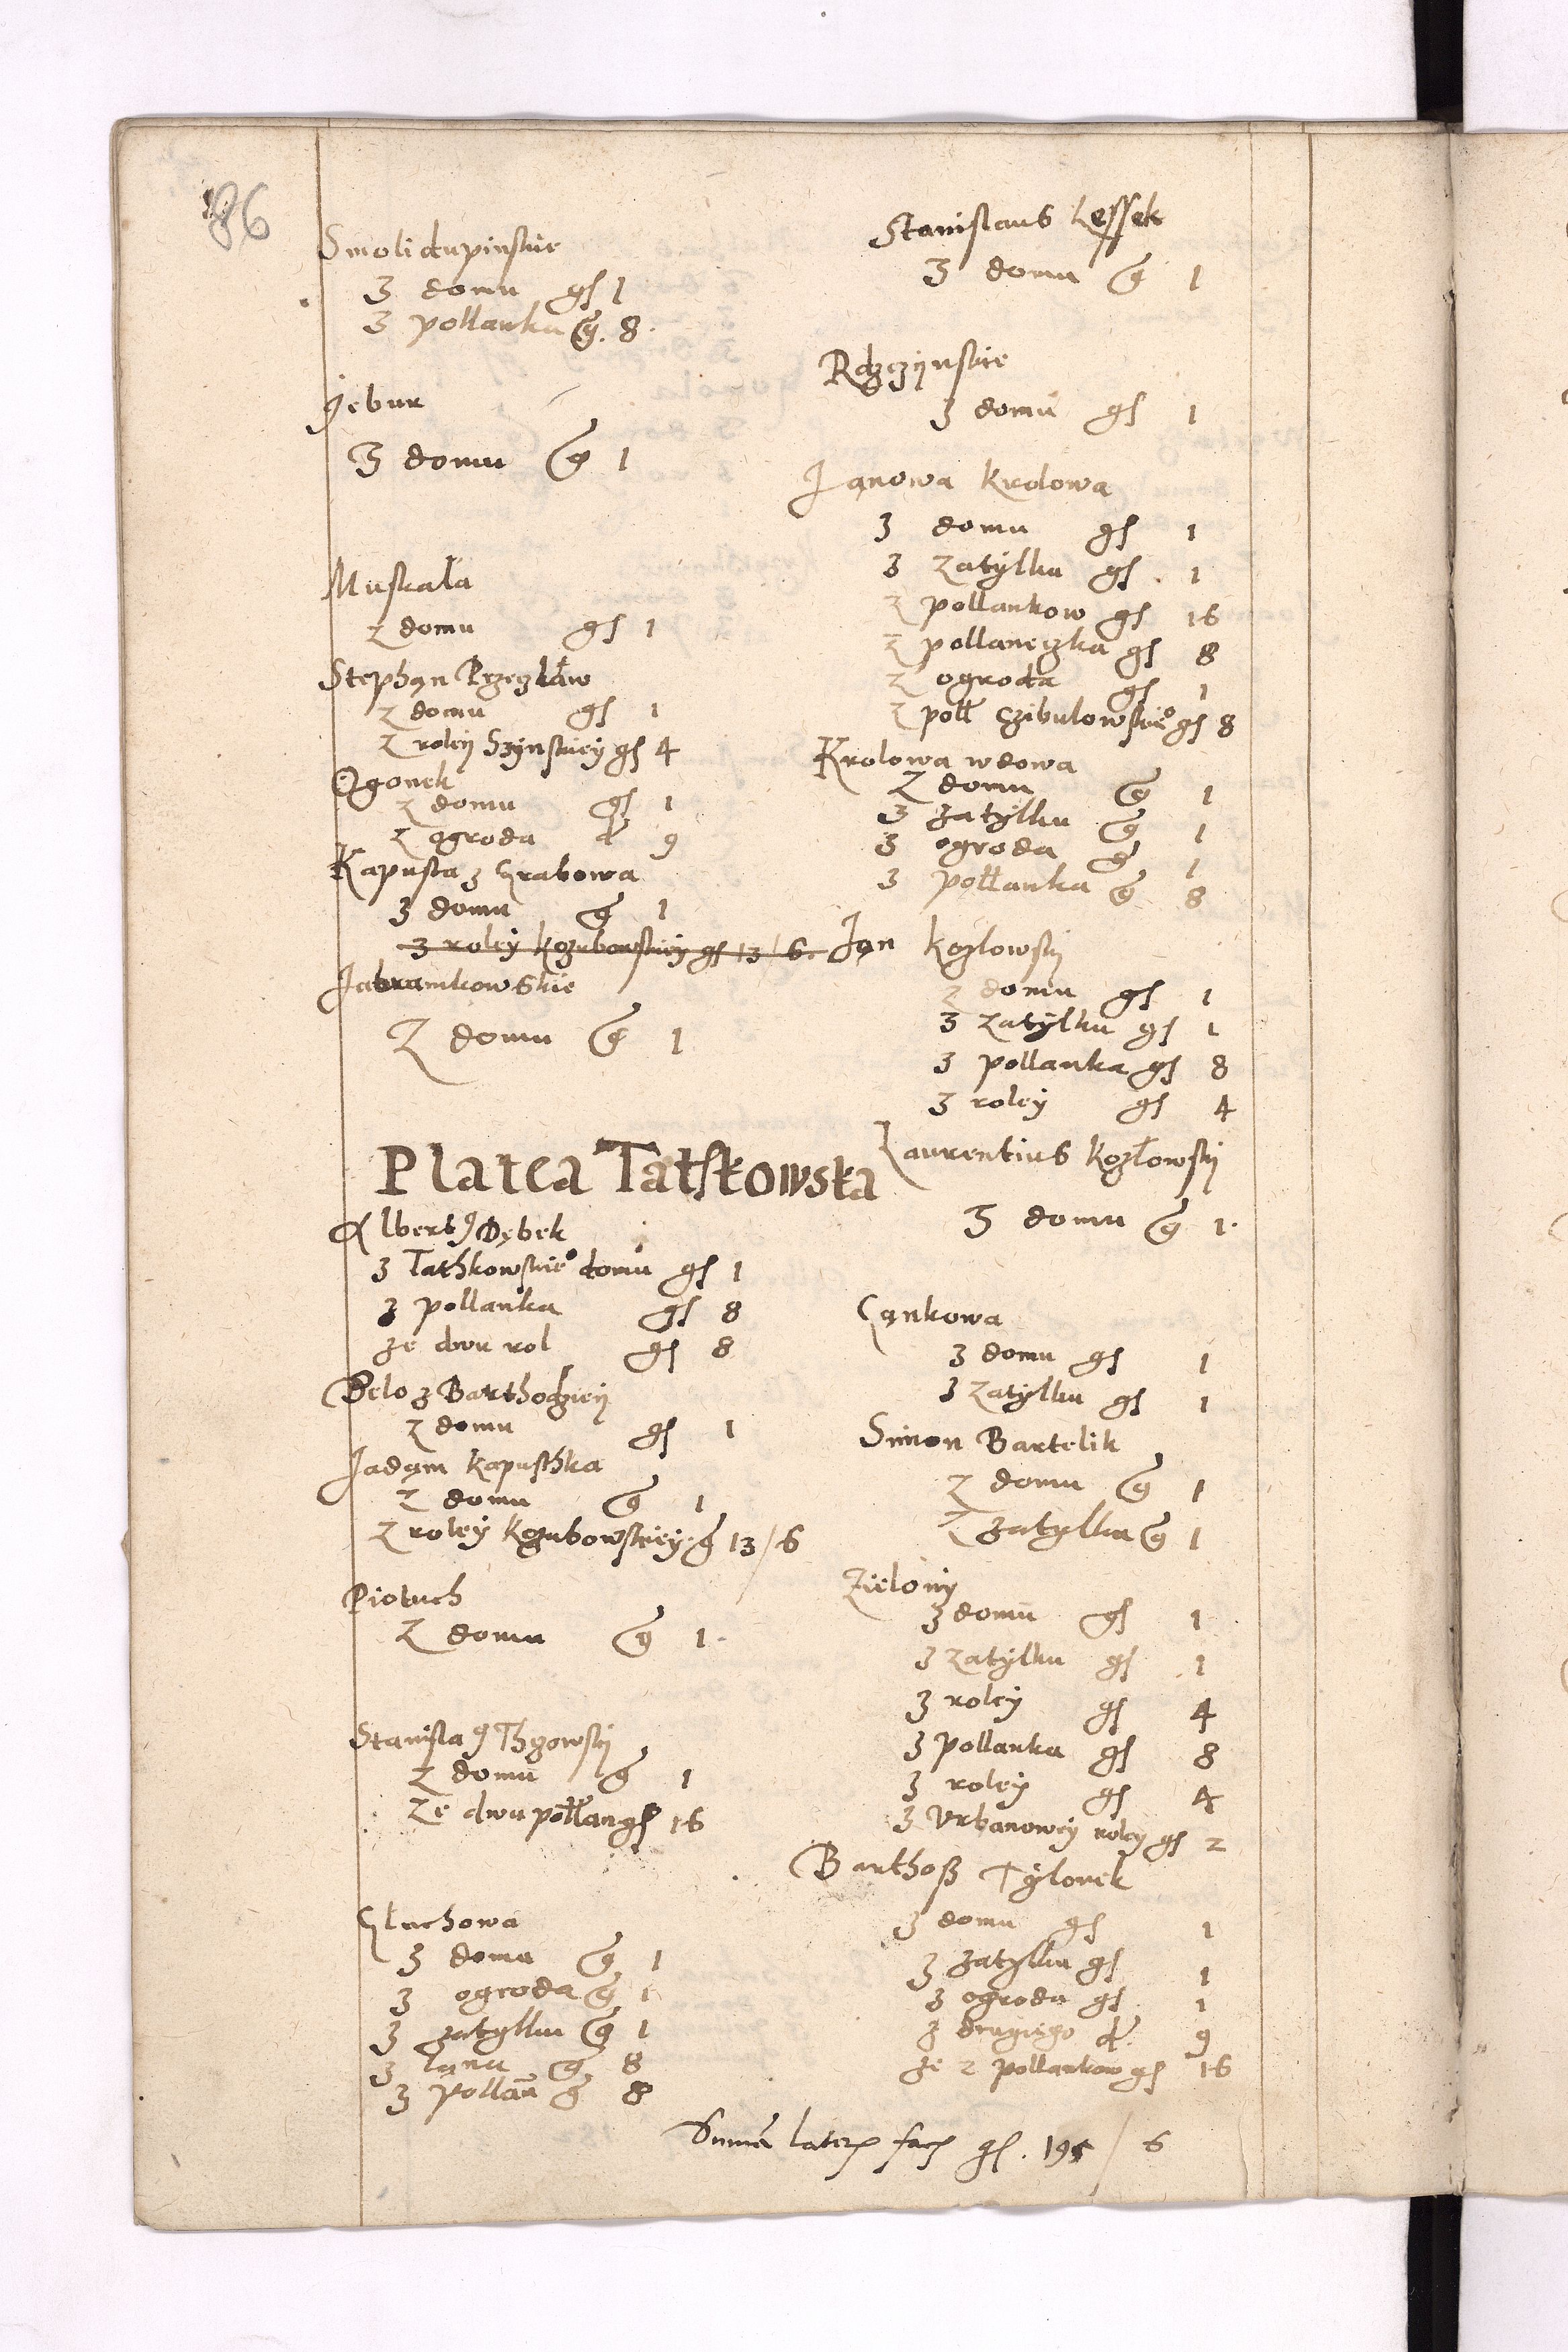 86
Smolidupinskie
З domu gſ 1
З pollanku g. 8.
gebur
З domu g 1
Muskała
z domu gſ 1
Stephąn Przeczław
z domu gſ 1
z roley Szynskiey gſ 4
Ogonek
z domu gſ 1
z ogroda đ 9
Kapusta з Grabowa
з domu g 1
з roley Kozubowskiey gſ 13/6.
Jabramkowskie
Z domu g 1
Platea Tatskowska
Albertꝰ Dębek
з Tathkowskieº domu gſ 1
з pollanka gſ 8
ze dwu rol gſ 8
Belo з Barthodzieij
z domu gſ 1
Jadąm Kapusthka
z domu g 1
z roley Kozubowskieÿ g 13/6
Piotuch
Z domu g 1.
Stanislaꝰ Thgowski
z domu g 1
Ze dwu połłan gſ 16
Głuchowa
з domu g 1
з ogroda g 1
з zatyllu g 1
з łanu g 8
з pollan g 8
Stanislaus Lessek
З domu g 1
Rdzczÿnskie
з domu gſ 1
Janowa Krolowa
з domu gſ 1
з zatylku gſ 1
z pollankow gſ 16
z pollaneczka gſ 8
z ogroda gſ 1
z połł Czibulowskieº gſ 8
Krolowa wdowa
Z domu g 1
з zatylku g 1
з ogroda g 1
з połłanka g 8
Jąn Kozlowski
z domu gſ 1
з zatylku gſ 1
з pollanka gſ 8
з roley gſ 4
Laurentius Kozłowski
З domu g 1.
Cąnkowa
з domu gſ 1
з zatylku gſ 1
Simon Bartelik
z domu g 1
z zatylku g 1
Zielony
з domu gſ 1
з zatylku gſ 1
з roley gſ 4
з pollanka gſ 8
з roley gſ 4
з Vrbanowey roley gſ 2
Barthoß Tylonek
з domu gſ 1
з zatyllu gſ 1
з ogroda gſ 1
з drugiego đ. 9
ze 2 pollankow gſ 16
Suma lateris facit gſ. 195/6